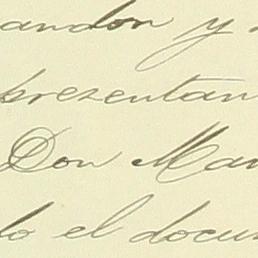 andon y
prezentan
Don Man
lo el docum